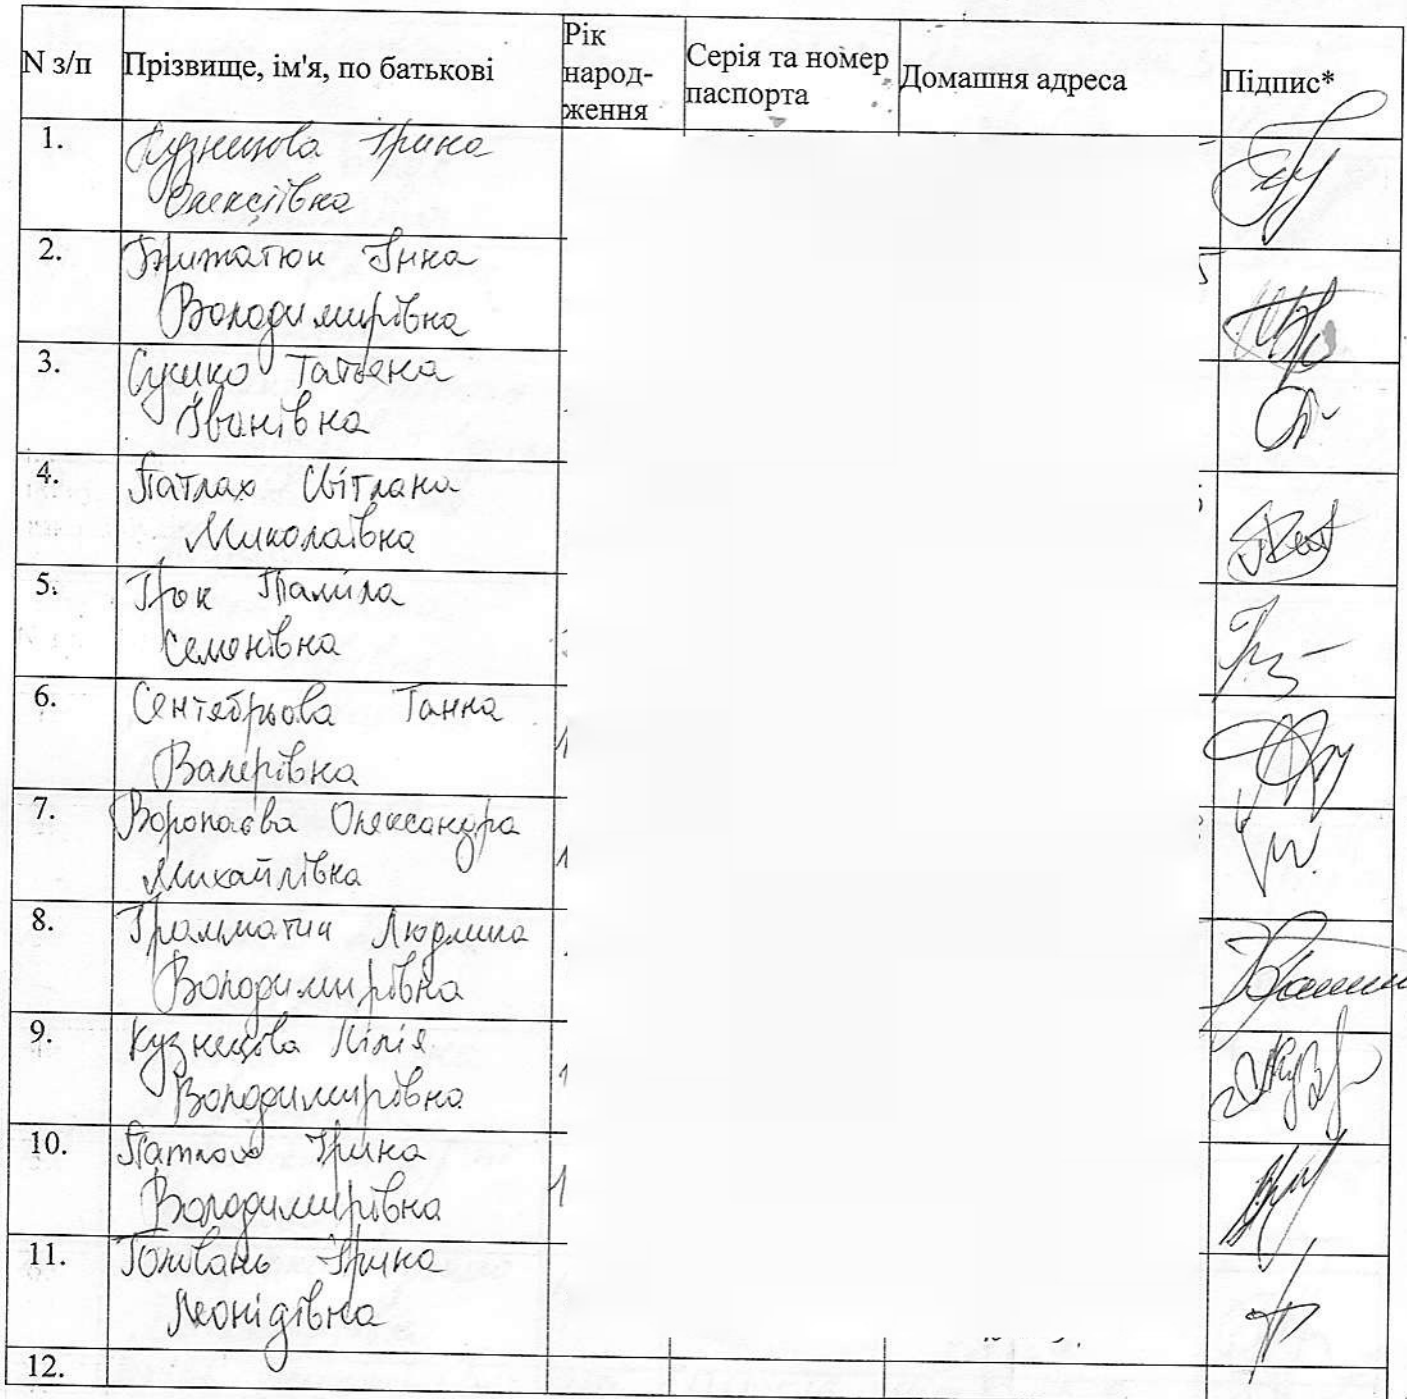 N з/п Прізвище, ім'я, по батькові Рік народ-ження Серія та номер паспорта Домашня адреса Підпис*
1. Кузнецова Ірина
Олексіївна
2. Інна
Володимирівна
3. Сушко Татьяна
Іванівна
4. Патлах Світлана
Миколаївна
5. Грок Галина
Семенівна
6. Сентябрьова Ганна
Валеріївна
7. Воропаєва Олександра
Михайлівна
8. Грамматик Людмила
Володимирівна
9. Кузнецова Лілія
Володимирівна
10. Патлах Ірина
Володимирівна
11. Ірина
Леонідівна
12.